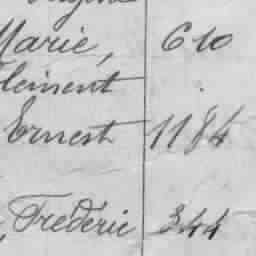 Marie, 610
Clement
Ernest 1184
Frédéric 344